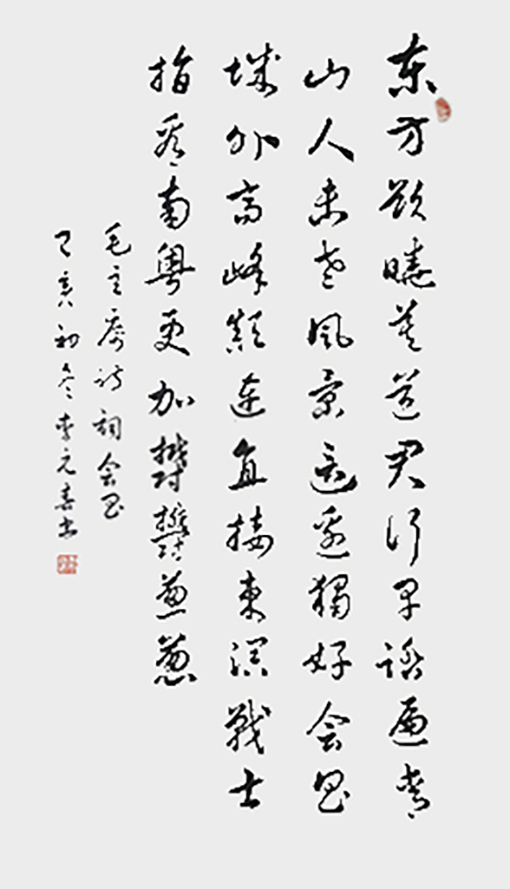 东方欲曉莫道君行早踏遍青
山人未老风景这边獨好会昌
城外高峰颠连直接東溟戰士
指看南粤更加欝欝葱葱
毛主席诗词会昌
己亥初冬李元喜书